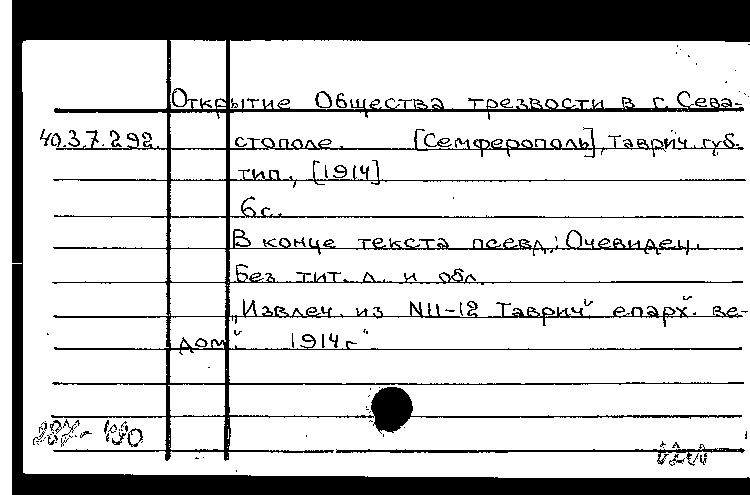 Открытие Общества трезвости в г. Сева-
40.3.7.292 стополе. [Семферополь], Таврич. губ.
тип., [1914]
6 с.
В конце текста псевд.: Очевидец.
Без тит. л. и обл.
„Извлеч. из №11-12 Таврич. епарх. ве-
дом. 1914 г."
287-490